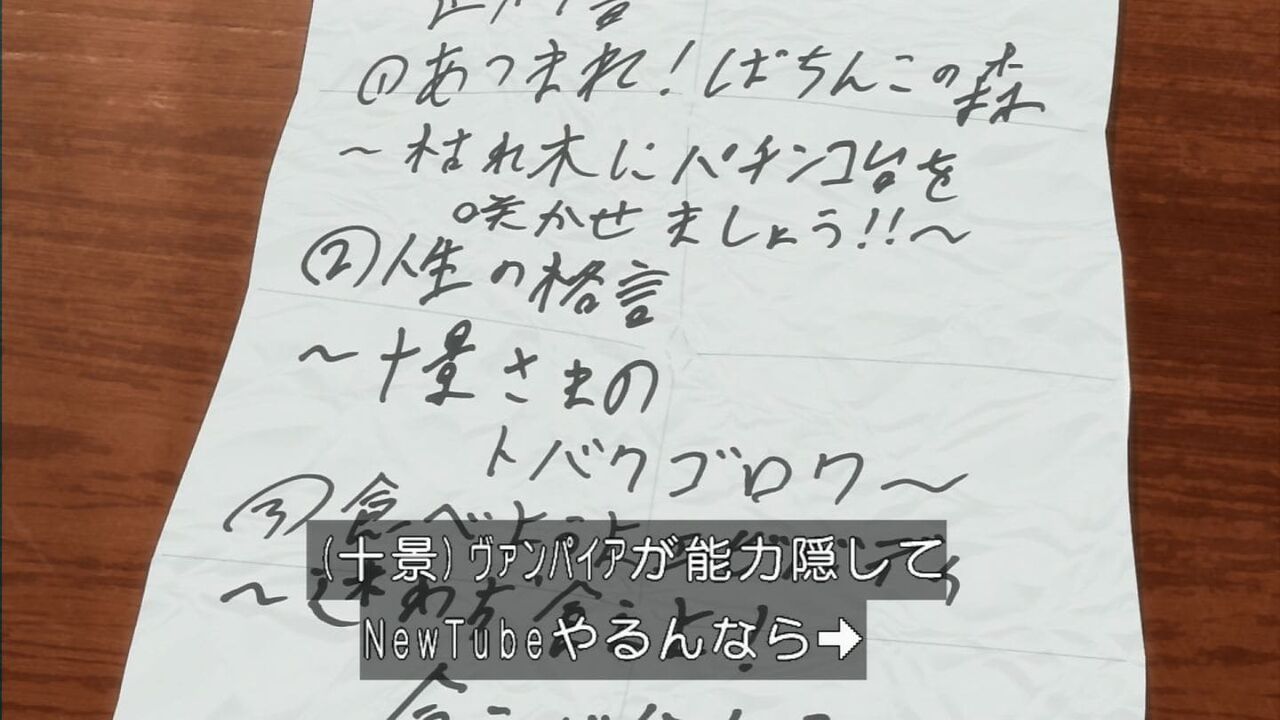 ①あつまれ!ぱちんこの森
~枯れ木にパチンコ台を
咲かせましょう!!~
②人生の格言
~十景さまの
トバクゴロク~
③食べようよ
(十景)ヴァンパイアが能力隠して
NewTubeやるんなら➡